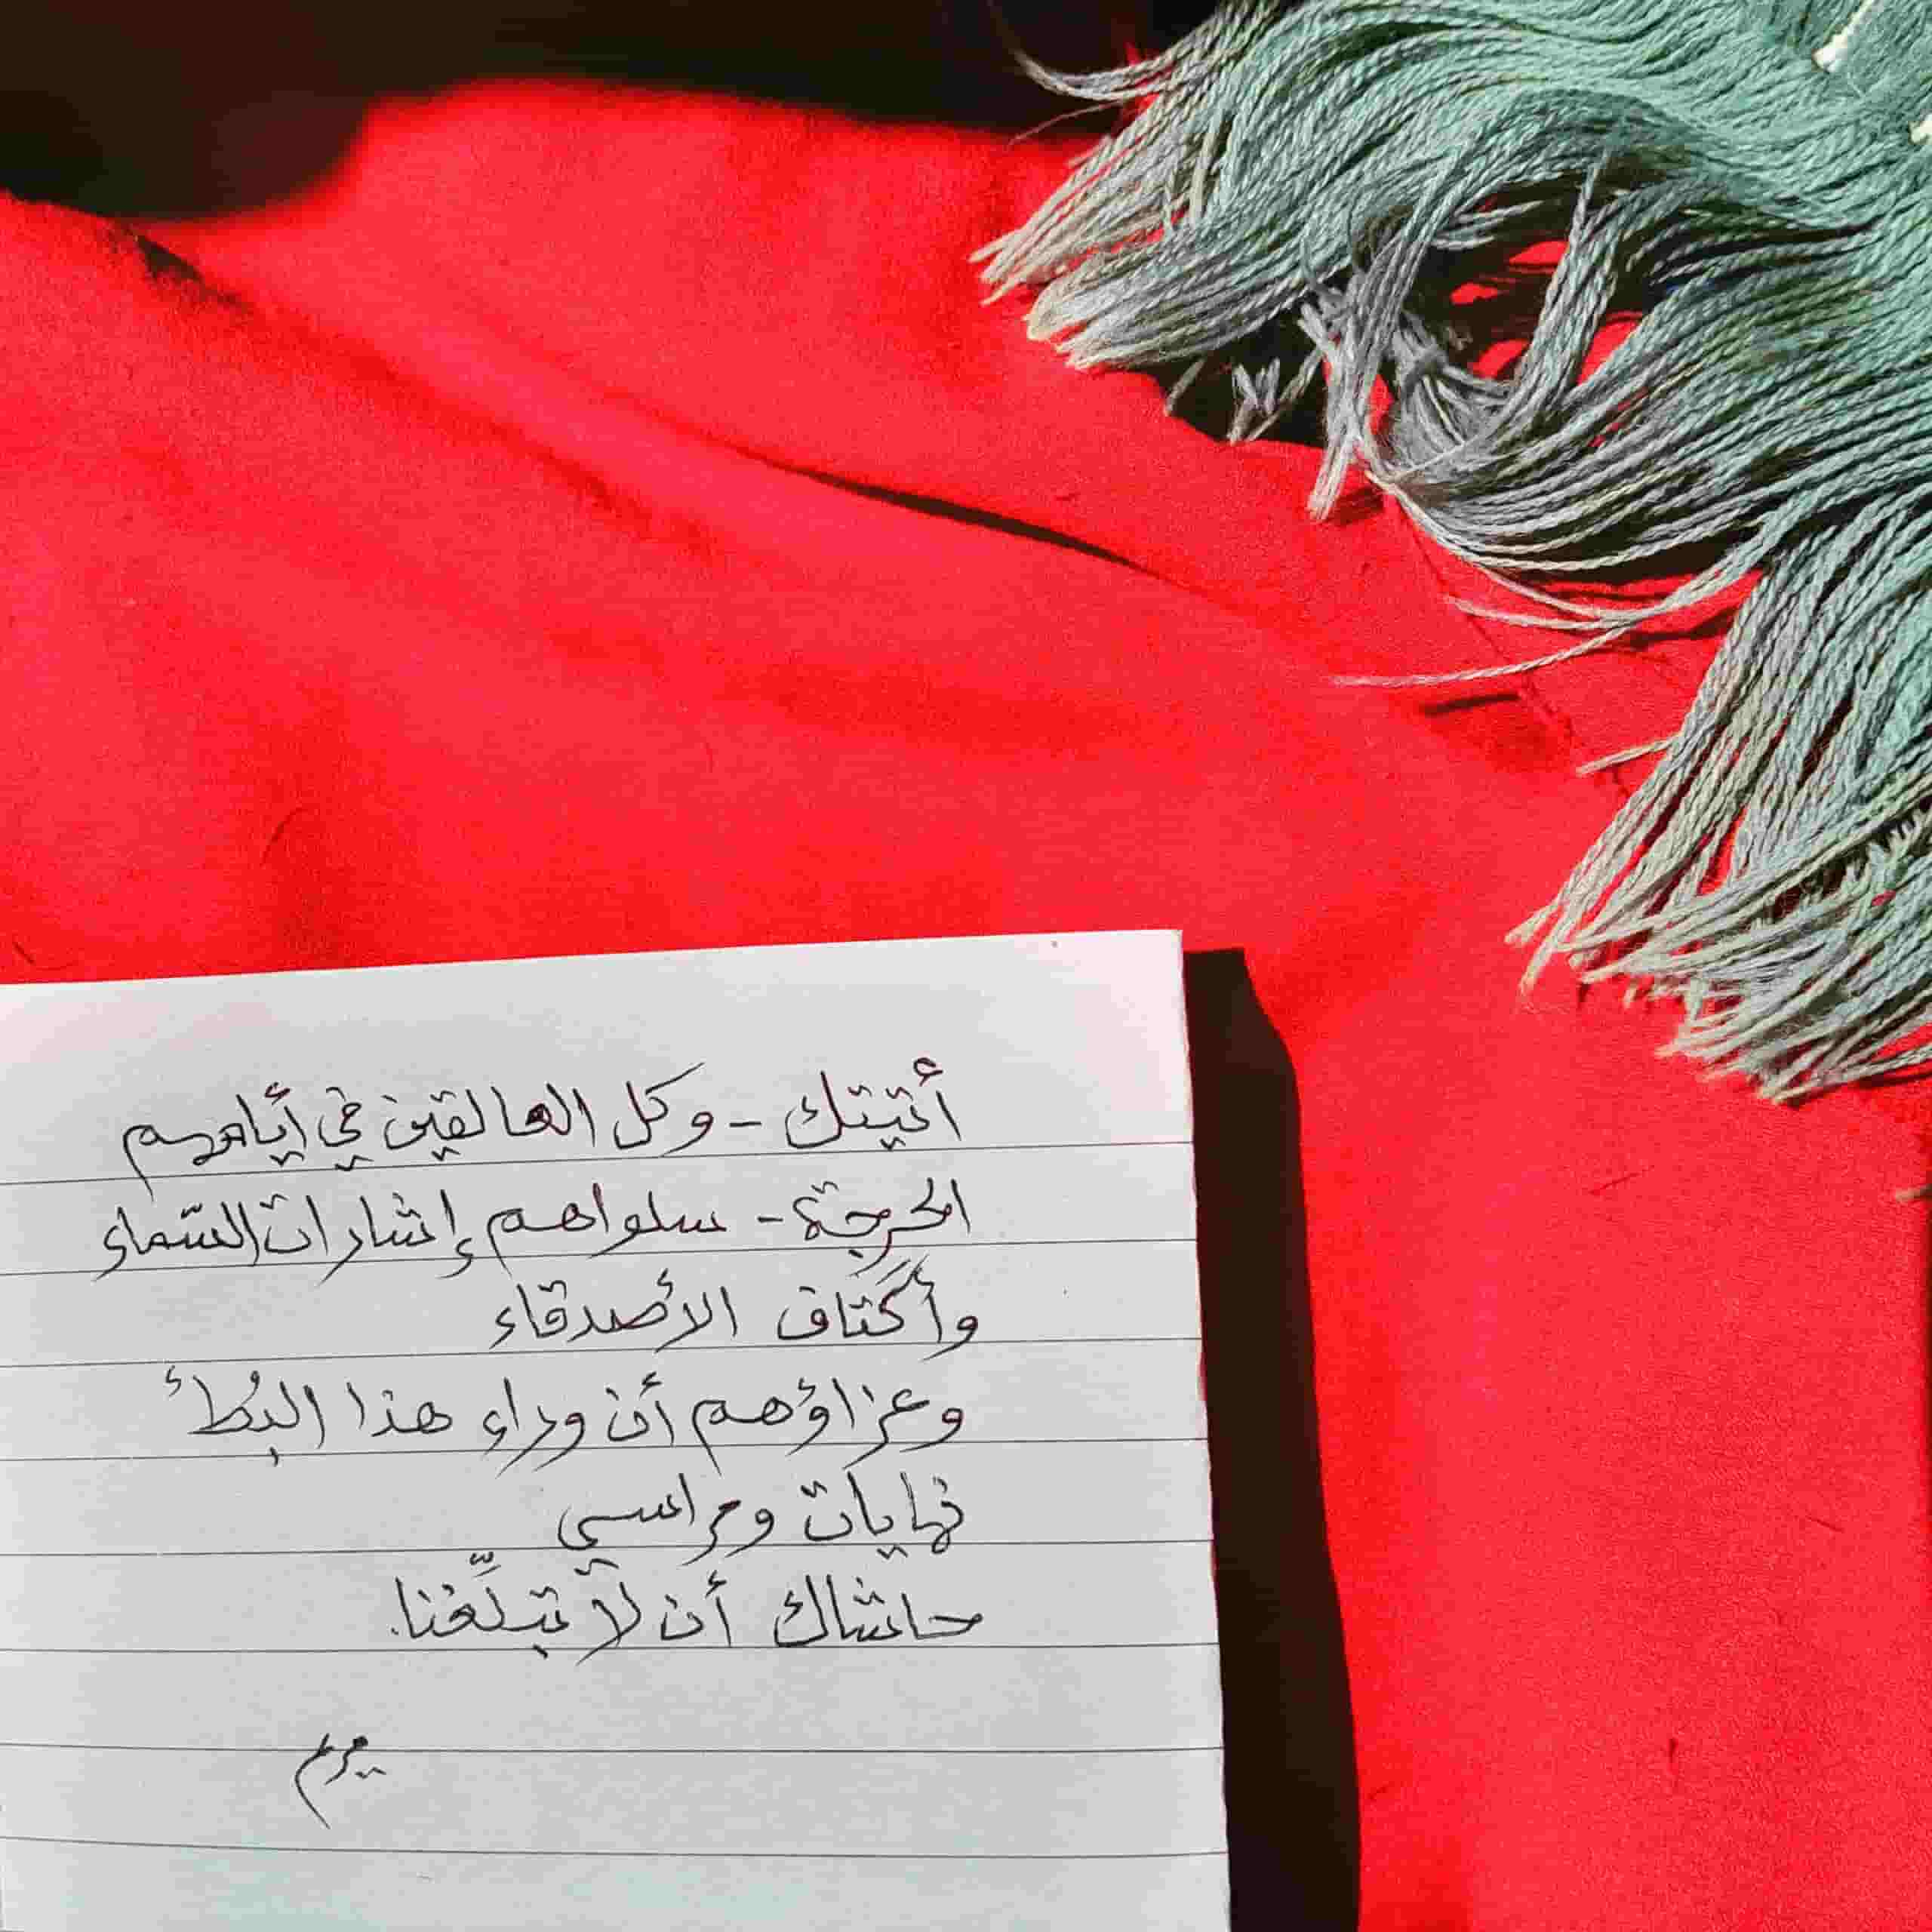 أتيتك - وكل العالقين في أيامهم
الحرجة - سلواهم إشارات السّماء
وأكَتاف الأصدقاء
وعزاؤهم أن وراء هذا البُطأ
نهايات ومراسي
حاشاك أن لا تبلِّغنا.
مريم